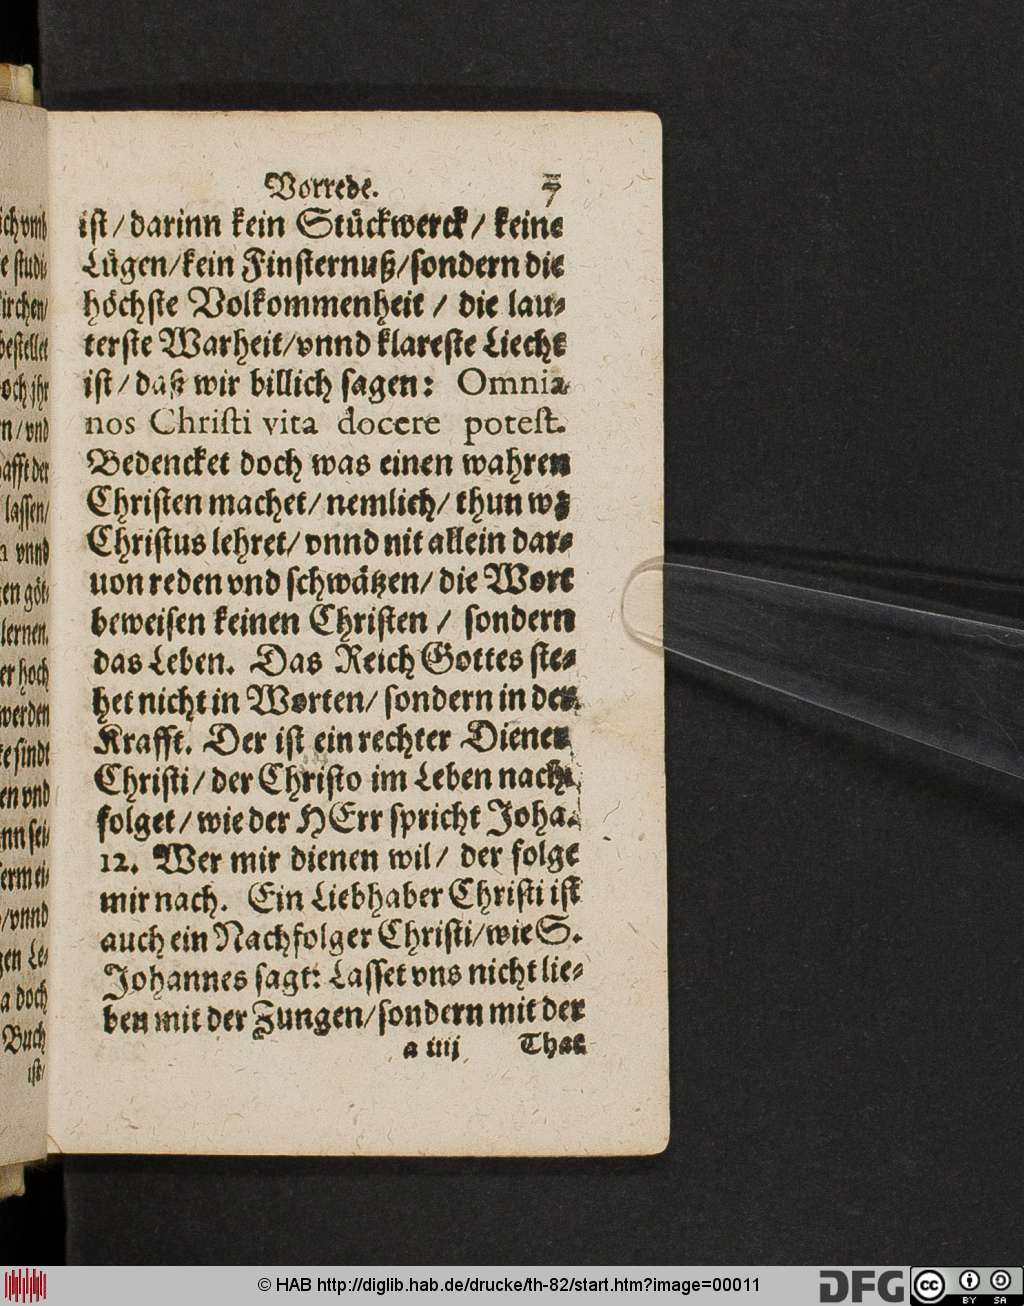 Vorrede. 7
ist / darinn kein Stückwerck / keine
Lügen / kein Finsternuß / sondern die
höchste Volkommenheit / die lau-
terste Warheit / vnnd klareste Liecht
ist / daß wir billich sagen: Omnia
nos Christi vita docere potest.
Bedencket doch was einen wahren
Christen machet / nemlich / thun wz
Christus lehret / vnnd nit allein dar-
uon reden vnd schwätzen / die Wort
beweisen keinen Christen / sondern
das Leben. Das Reich Gottes ste-
het nicht in Worten / sondern in der
Krafft. Der ist ein rechter Diener
Christi / der Christo im Leben nach-
folget / wie der HErr spricht Joha.
12. Wer mir dienen wil / der folge
mir nach. Ein Liebhaber Christi ist
auch ein Nachfolger Christi / wie S.
Johannes sagt: Lasset vns nicht lie-
ben mit der Zungen / sondern mit der
a iiij That
ich vmb
e studi-
irchen /
bestellet
och jhr
n / vnd
afft der
lassen /
n vnnd
en göt-
lernen.
er hoch
werden
te sindt
en vnd
nn sei-
erm ei-
/ vnnd
gen Le-
a doch
Buch
ist /
© HAB http://diglib.hab.de/drucke/th-82/start.htm?image=00011
DFG
cc BY SA